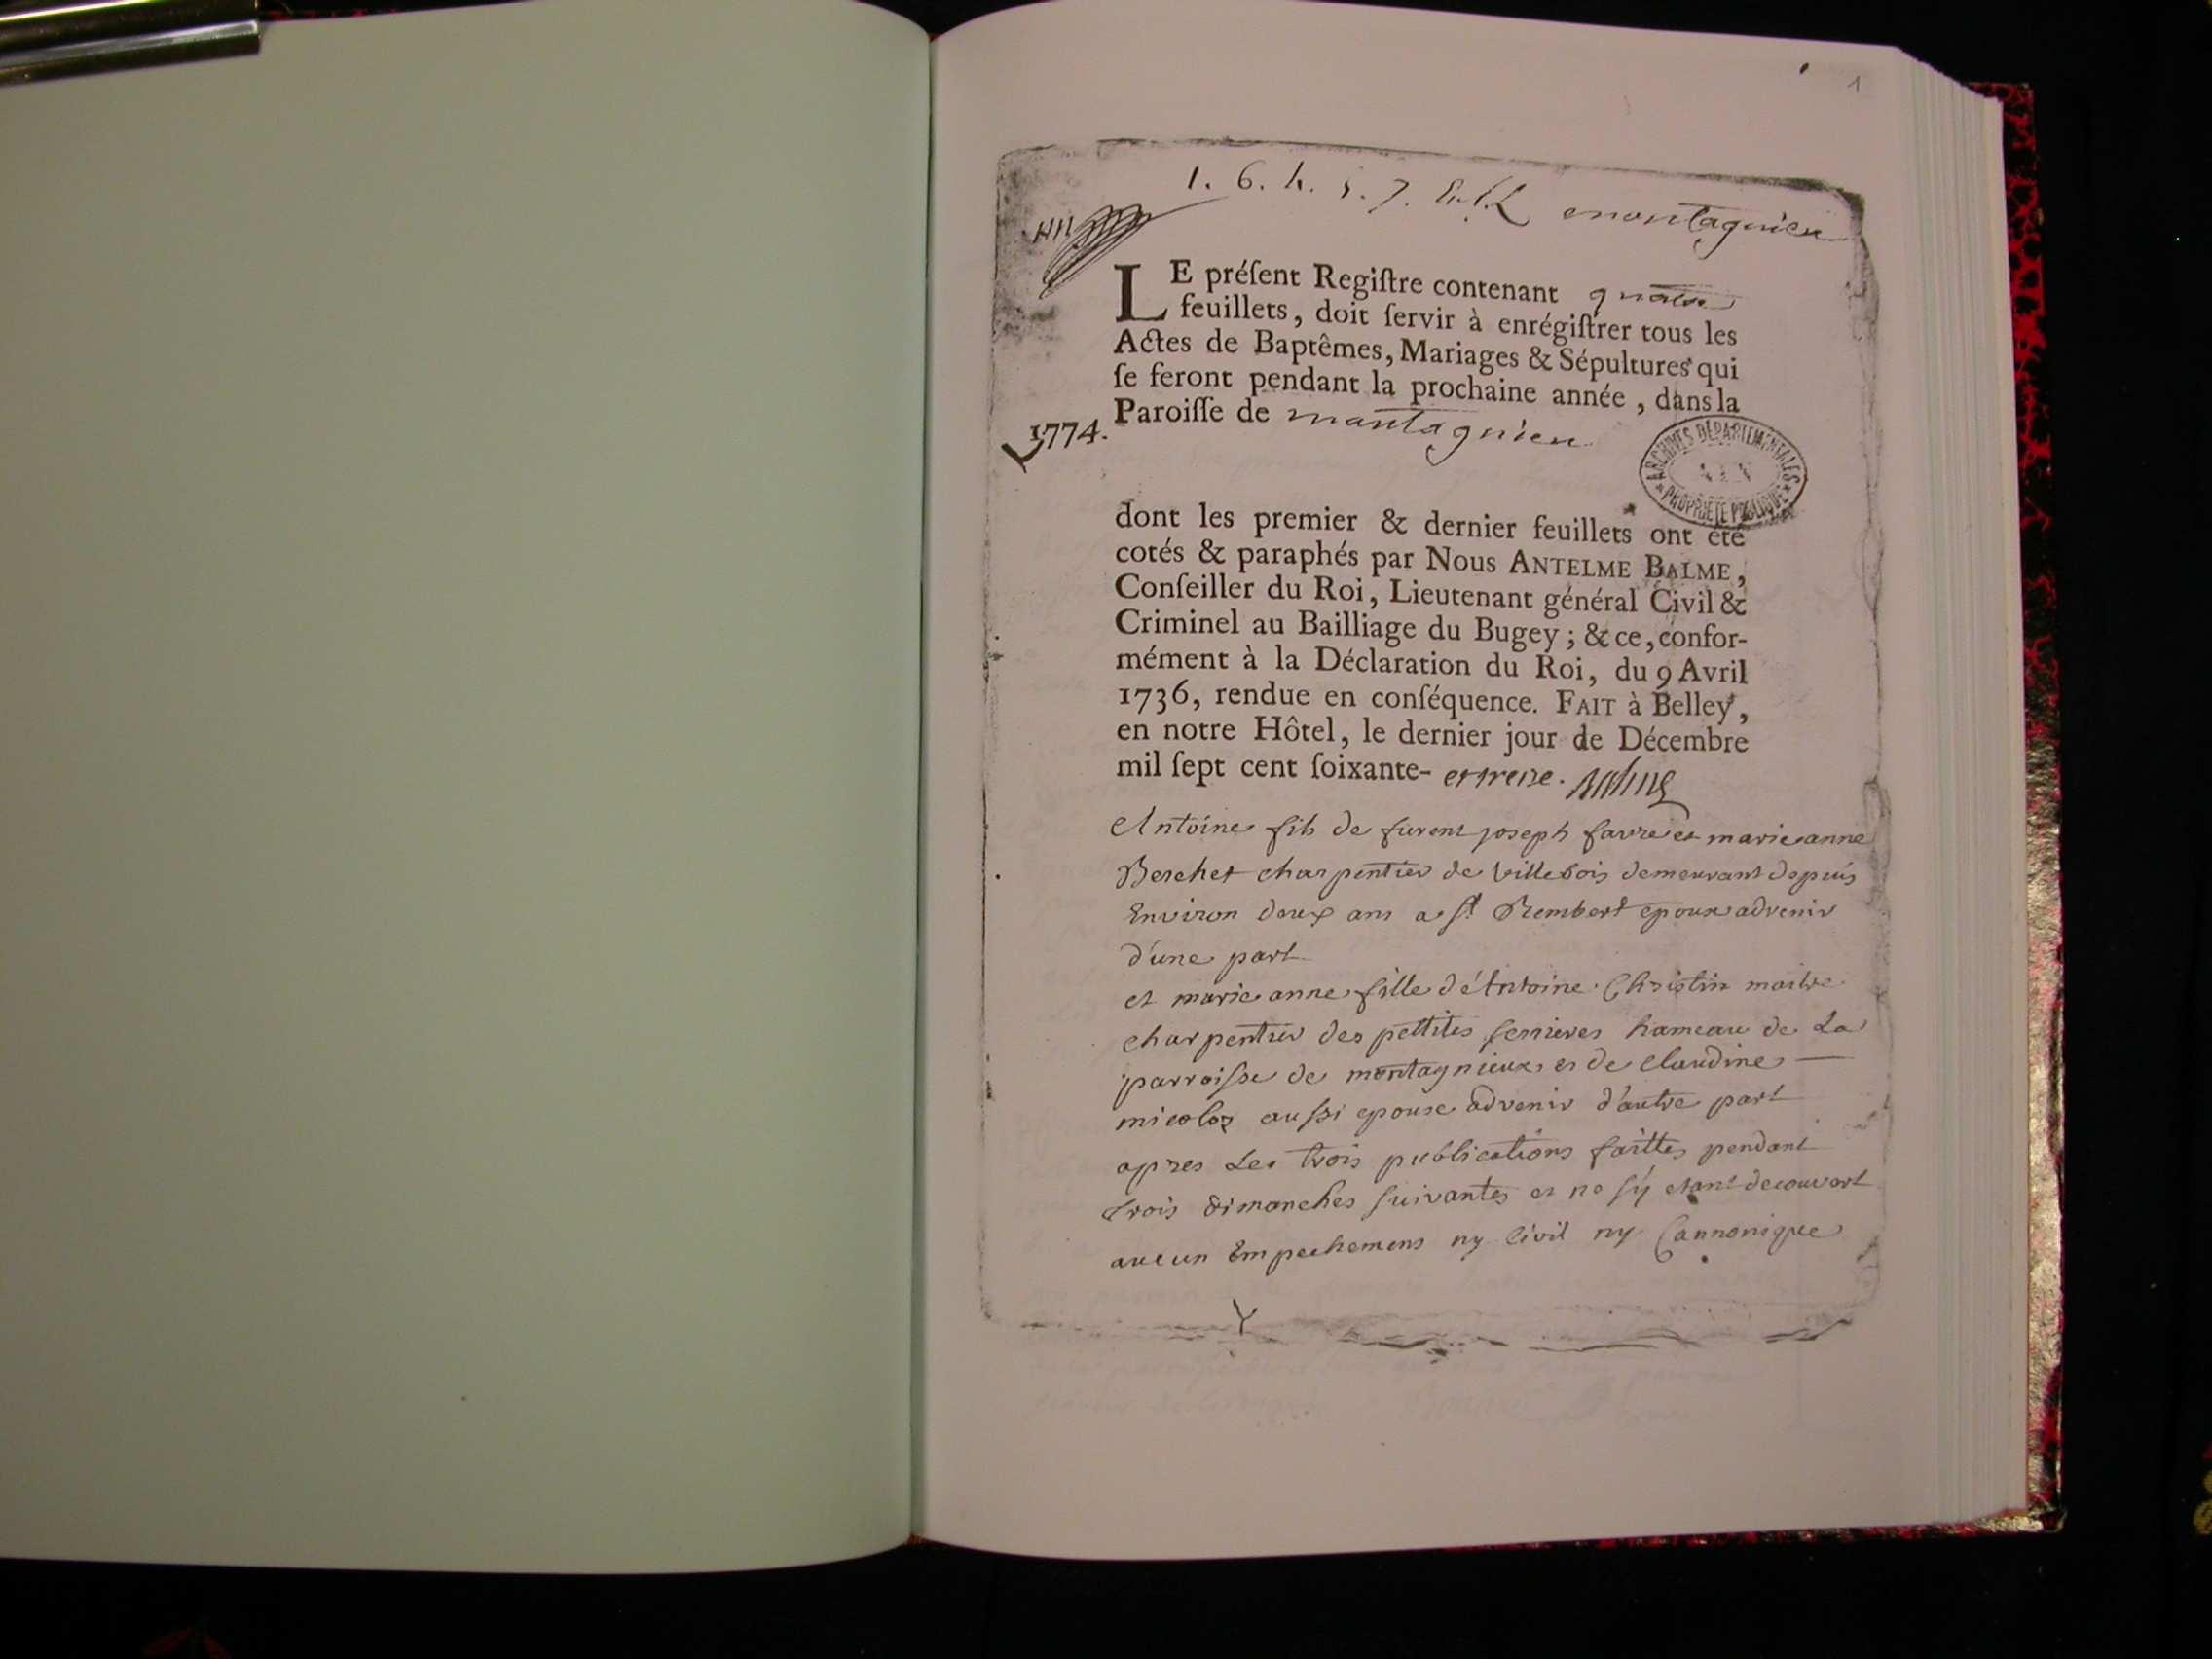 1
1. 6. 4. 5. 7. montagnieu
LE préſent Regiſtre contenant quatre
feuillets, doit ſervir à enrégiſtrer tous les
Actes de Baptêmes, Mariages & Sépultures qui
ſe feront pendant la prochaine année, dans la
1774. Paroiſſe de montagnieu
ARCHIVES DÉPARTEMENTALES
AIN
* PROPRIÉTÉ PUBLIQUE *
dont les premier & dernier feuillets ont été
cotés & paraphés par Nous ANTELME BALME,
Conſeiller du Roi, Lieutenant général Civil &
Criminel au Bailliage du Bugey; & ce, confor-
mément à la Déclaration du Roi, du 9 Avril
1736, rendue en conſéquence. FAIT à Belley,
en notre Hôtel, le dernier jour de Décembre
mil ſept cent ſoixante- et treize. Balme
Antoine fils de furent joseph favre et marie anne
Berchet charpentier de villebois demeurant depuis
Environ deux ans a St Rembert epoux advenir
d'une part
et marie anne fille d'Antoine Christin maitre
charpentier des pettites serrieres hameau de La
parroisse de montagnieux et de claudine
micoloz aussi epouse advenir d'autre part
apres Les trois publications faittes pendant
trois dimanches suivantes et ne s'y etant decouvert
aucun Empechemens ny Civil ny Cannonique